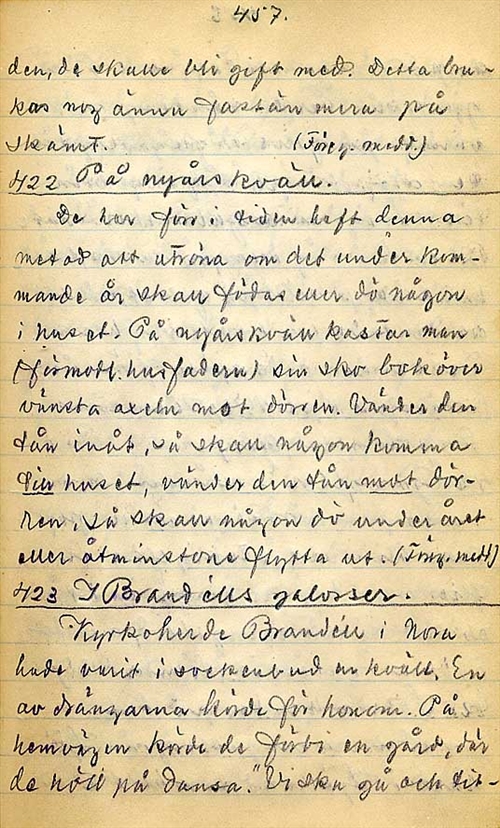 457.
den, de skulle bli gift med. Detta bru-
kas nog ännu fastän mera på
skämt. (Föreg. medd.)
422 På nyårskväll.
De har förr i tiden haft denna
metod att utröna om det under kom-
mande år skall födas eller dö någon
i huset. På nyårskväll kastar man
(förmodl. husfadern) sin sko bak över
vänsta axeln mot dörren. Vänder den
tån inåt, så skall någon komma
till huset, vänder den tån mot dör-
ren, så skall någon dö under året
eller åtminstone flytta ut. (Föreg. medd)
423 I Brandélls galosser.
Kyrkoherde Brandéll i Nora
hade varit i sockenbud en kväll. En
av drängarna körde för honom. På
hemvägen körde de förbi en gård, där
de höll på dansa. "Vi ska gå och tit-